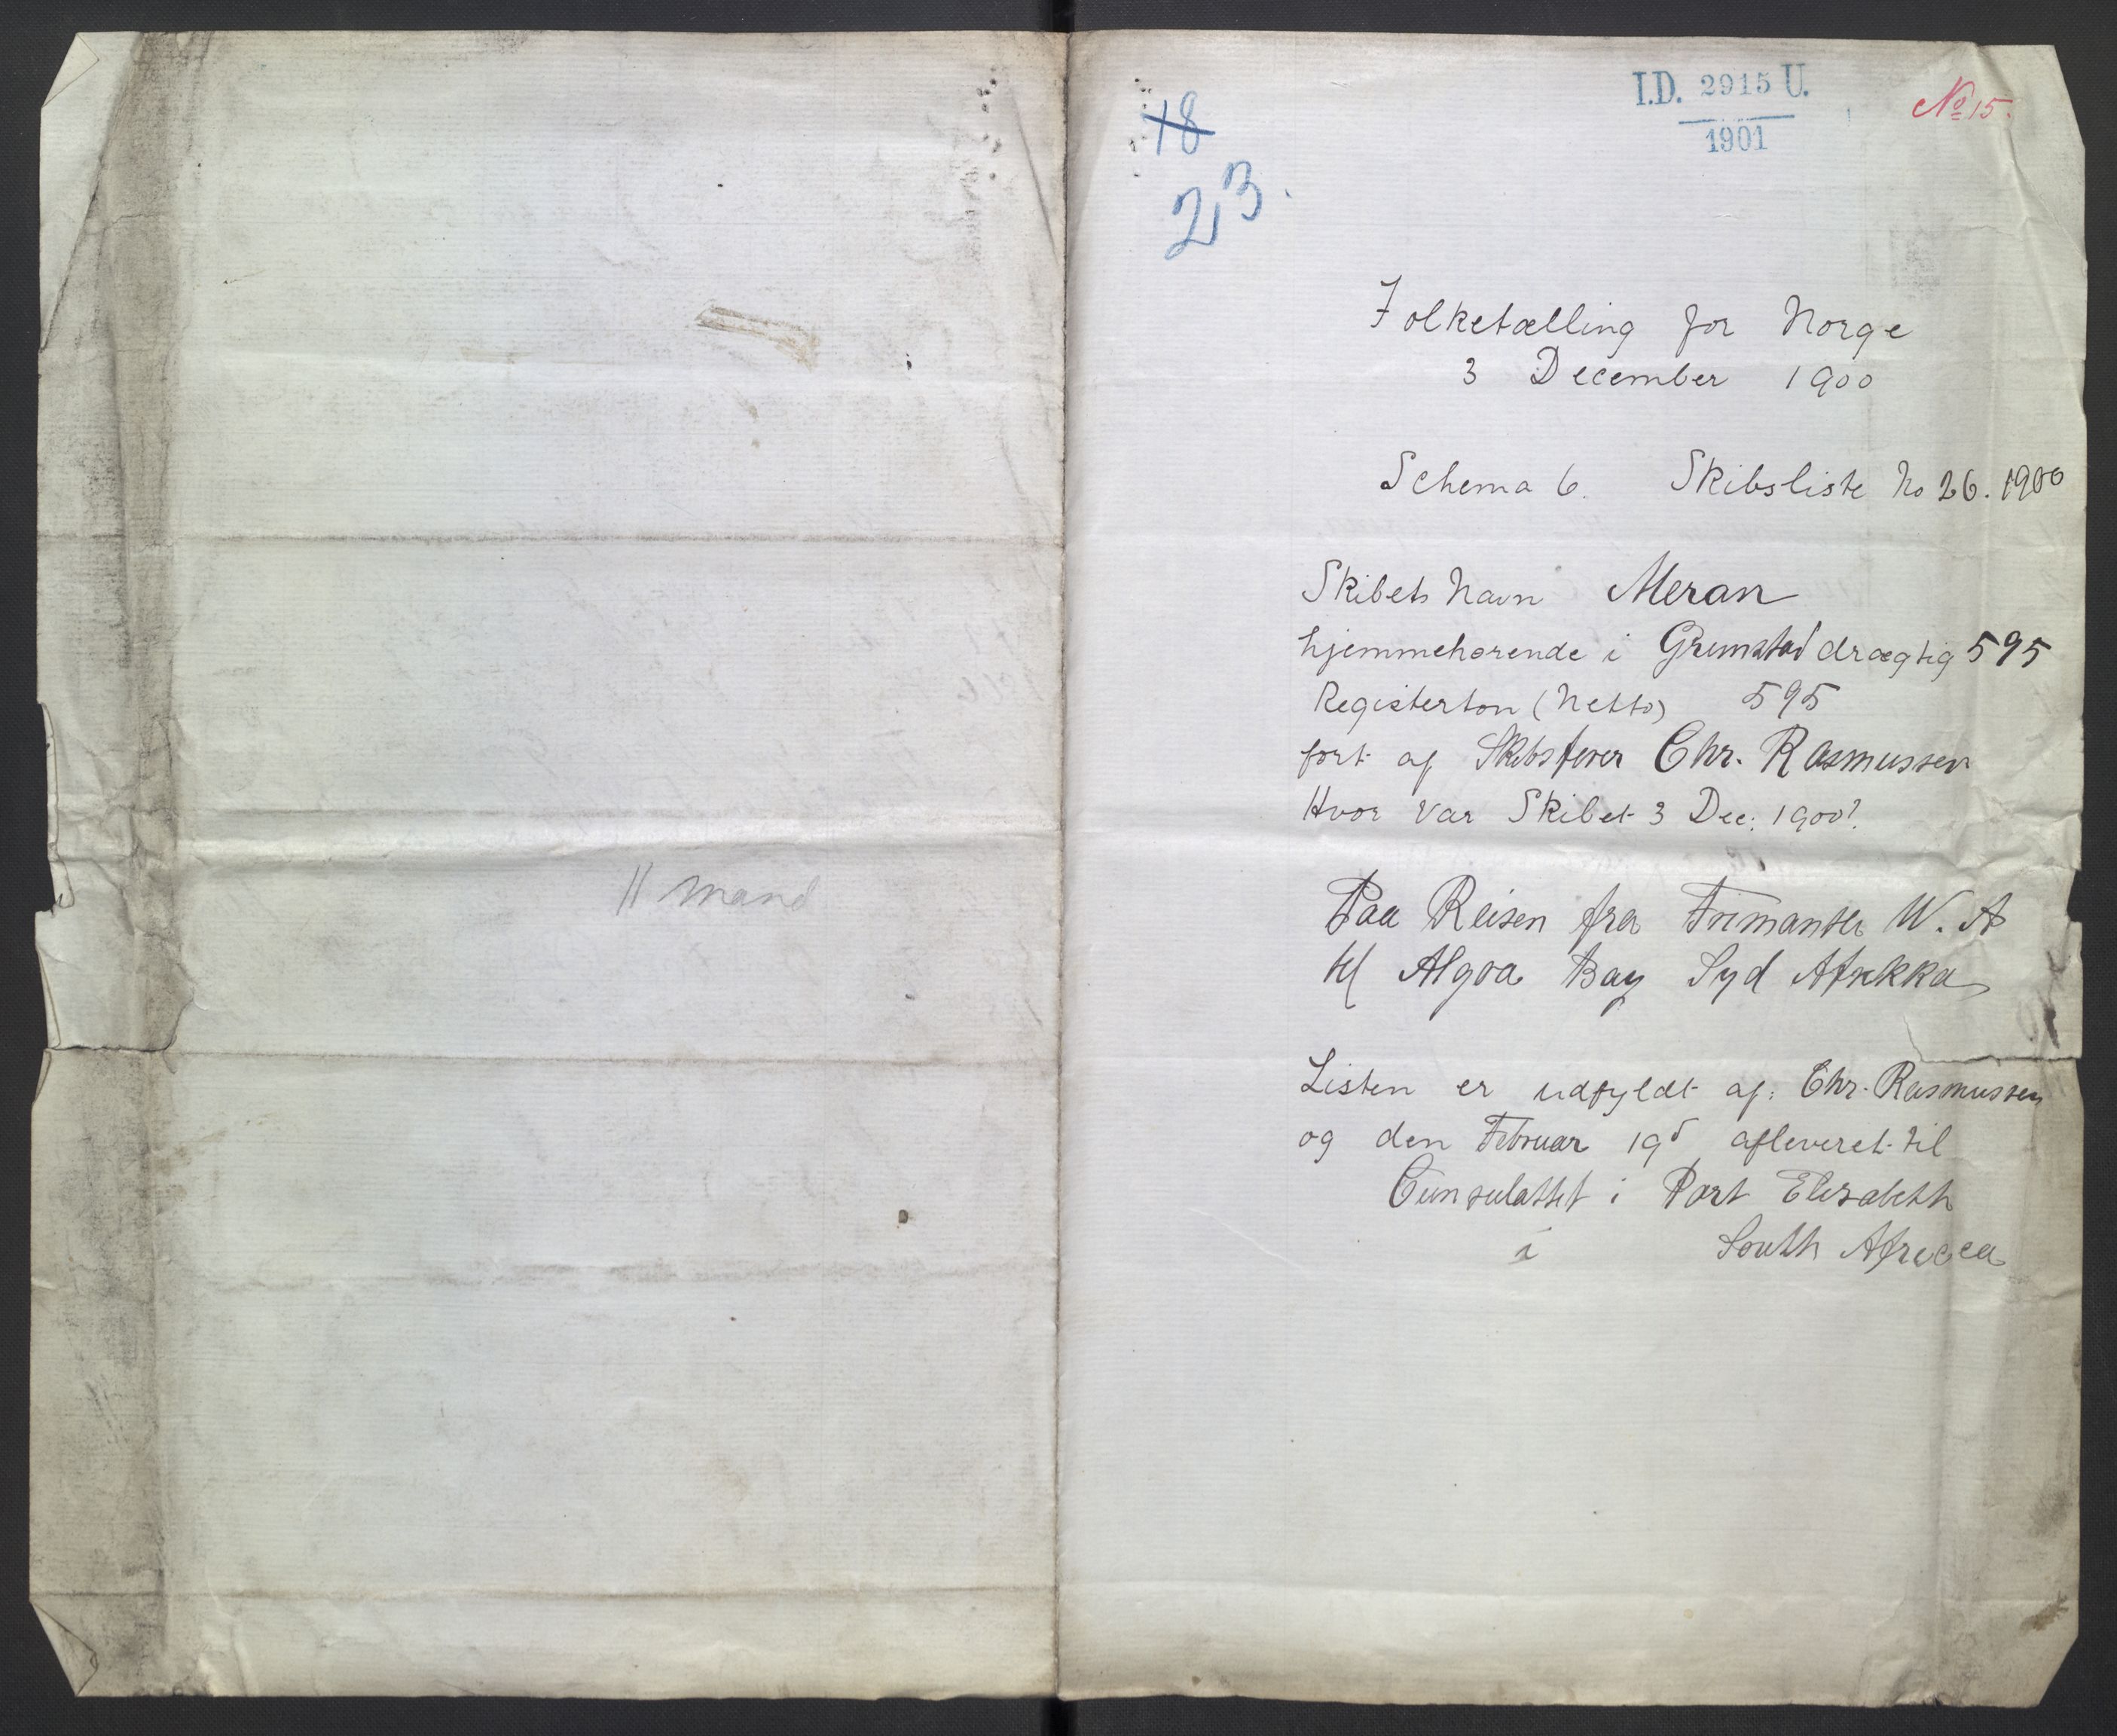 11 Mand
18
23.
I.D. 2915 U.
1901
No 15.
Folketælling for Norge
3 December 1900
Schema 6. Skibsliste No 26. 1900
Skibets Navn Meran
hjemmehørende i Grimstad drægtig 595
Registerton (Netto) 595
ført af Skibsfører Chr. Rasmussen
Hvor var Skibet 3 Dec: 1900?
Paa Reisen fra Frimantle W. A
til Algoa Bay Syd Afrikka
Listen er udfyldt af: Chr. Rasmussen
og den Februar afleveret til
Cunsulattet i Port Elisabeth
i South Africca